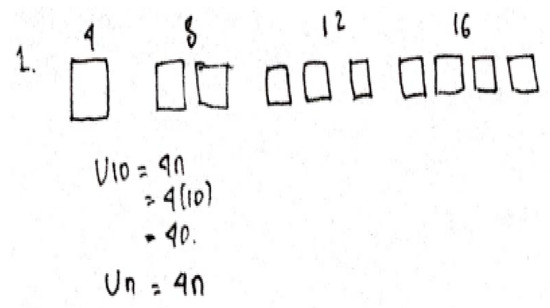 4 8 12 16
1.
U10 = 4n
= 4(10)
= 40.
Un = 4n